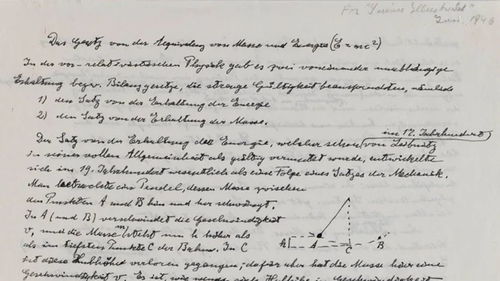 For "Science Illustrated"
Juni. 1946
Das Gesetz von der Aequivalenz von Masse und Energie (E = mc²)
In der vor-relativistischen Physik gab es zwei voneinander unabhängige
Erhaltung bezw. Bilanzgesetze, die strenge Gültigkeit beanspruchten, nämlich
1) den Satz von der Erhaltung der Energie
2) den Satz von der Erhaltung der Masse.
im 17. Jahrhundert
Der Satz von der Erhaltung der Energie, welcher schon von Leibnitz
in seiner vollen Allgemeinheit als gültig vermutet wurde, entwickelte
sich im 19. Jahrhundert wesentlich als eine Folge eines Satzes der Mechanik.
Man betrachte ein Pendel, dessen Masse zwischen
den Punkten A und B hin und her schwingt.
In A (und B) verschwindet die Geschwindigkeit
v, und die Masse m ist um h höher als
als im tiefsten Punkte C der Bahn. In C
ist diese Hubhöhe verloren gegangen; dafür aber hat die Masse hier eine
Geschwindigkeit v. Es ist, wie
h A C B